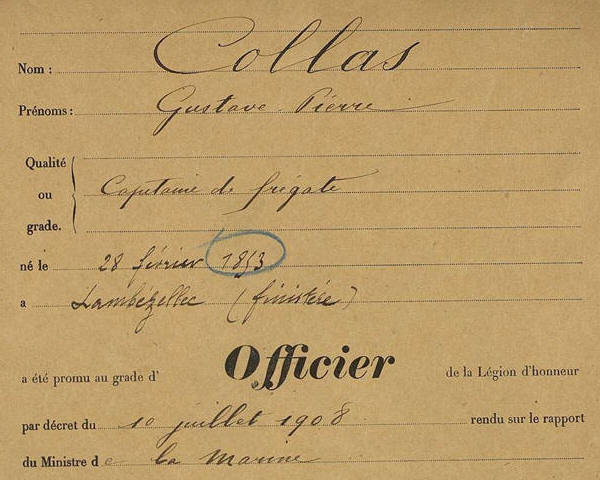 Nom : Collas
Prénoms : Gustave Pierre
Qualité
ou Capitaine de frégate
grade.
né le 28 février 1853
a Lambézellec (finistère)
a été promu au grade d' Officier de la Légion d'honneur
par décret du 10 juillet 1908 rendu sur le rapport
du Ministre de la marine